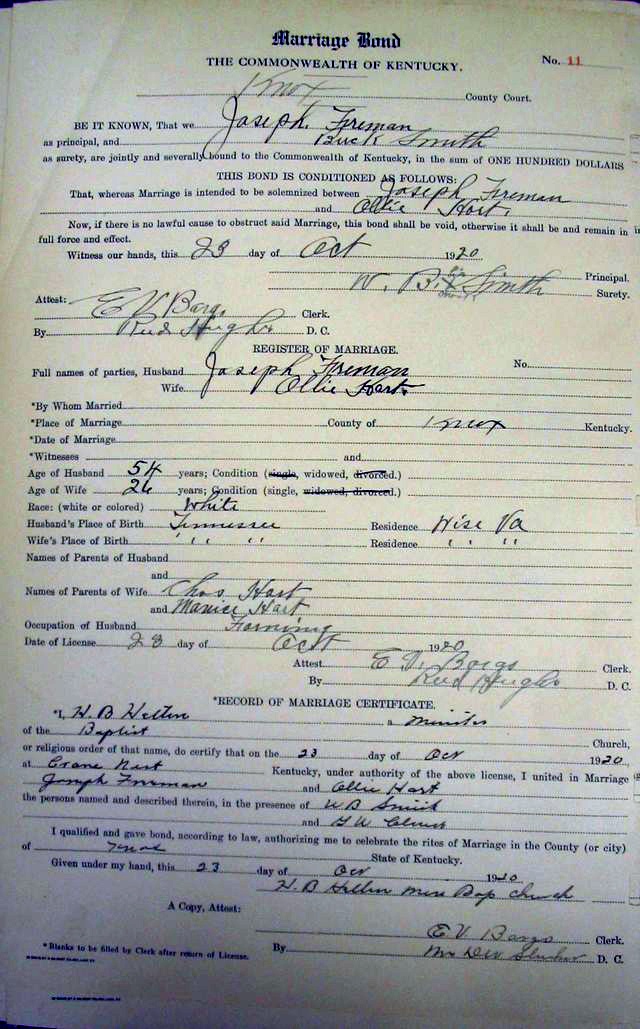 Marriage Bond
THE COMMONWEALTH OF KENTUCKY. No. 11
Knox County Court.
BE IT KNOWN, That we Joseph Foreman
as principal, and Buck Smith
as surety, are jointly and severally bound to the Commonwealth of Kentucky, in the sum of ONE HUNDRED DOLLARS
THIS BOND IS CONDITIONED AS FOLLOWS:
That, whereas Marriage is intended to be solemnized between Joseph Foreman
and Ollie Hart.
Now, if there is no lawful cause to obstruct said Marriage, this bond shall be void, otherwise it shall be and remain in
full force and effect.
Witness our hands, this 23 day of Oct 1920
Principal.
W. B. x Smith Surety.
Attest: E V Bargo Clerk.
By Reed D. C.
REGISTER OF MARRIAGE.
Full names of parties, Husband Joseph Foreman No.
Wife Ollie Hart.
*By Whom Married
*Place of Marriage County of Knox Kentucky.
*Date of Marriage
*Witnesses and
Age of Husband 54 years; Condition (single, widowed, divorced.)
Age of Wife 26 years; Condition (single, widowed, divorced.)
Race: (white or colored) White
Husband's Place of Birth Tennessee Residence Wise Va
Wife's Place of Birth " " " Residence " "
Names of Parents of Husband
and
Names of Parents of Wife Chas. Hart
and Hart
Occupation of Husband Farming
Date of License 23 day of Oct 1920
Attest E V. Bargo Clerk.
By Reed D. C.
*RECORD OF MARRIAGE CERTIFICATE.
*I, W. B Helton a Minister
of the Baptist Church,
or religious order of that name, do certify that on the 23 day of Oct 1920
at Crane Nest Kentucky, under authority of the above license, I united in Marriage
Joseph Foreman and Ollie Hart
the persons named and described therein, in the presence of W B Smith
and
I qualified and gave bond, according to law, authorizing me to celebrate the rites of Marriage in the County (or city)
of Knox State of Kentucky.
Given under my hand, this 23 day of Oct 1920
W. B Helton Bap Church
A Copy, Attest:
E V. Bargo Clerk.
*Blanks to be filled by Clerk after return of License. By D. C.